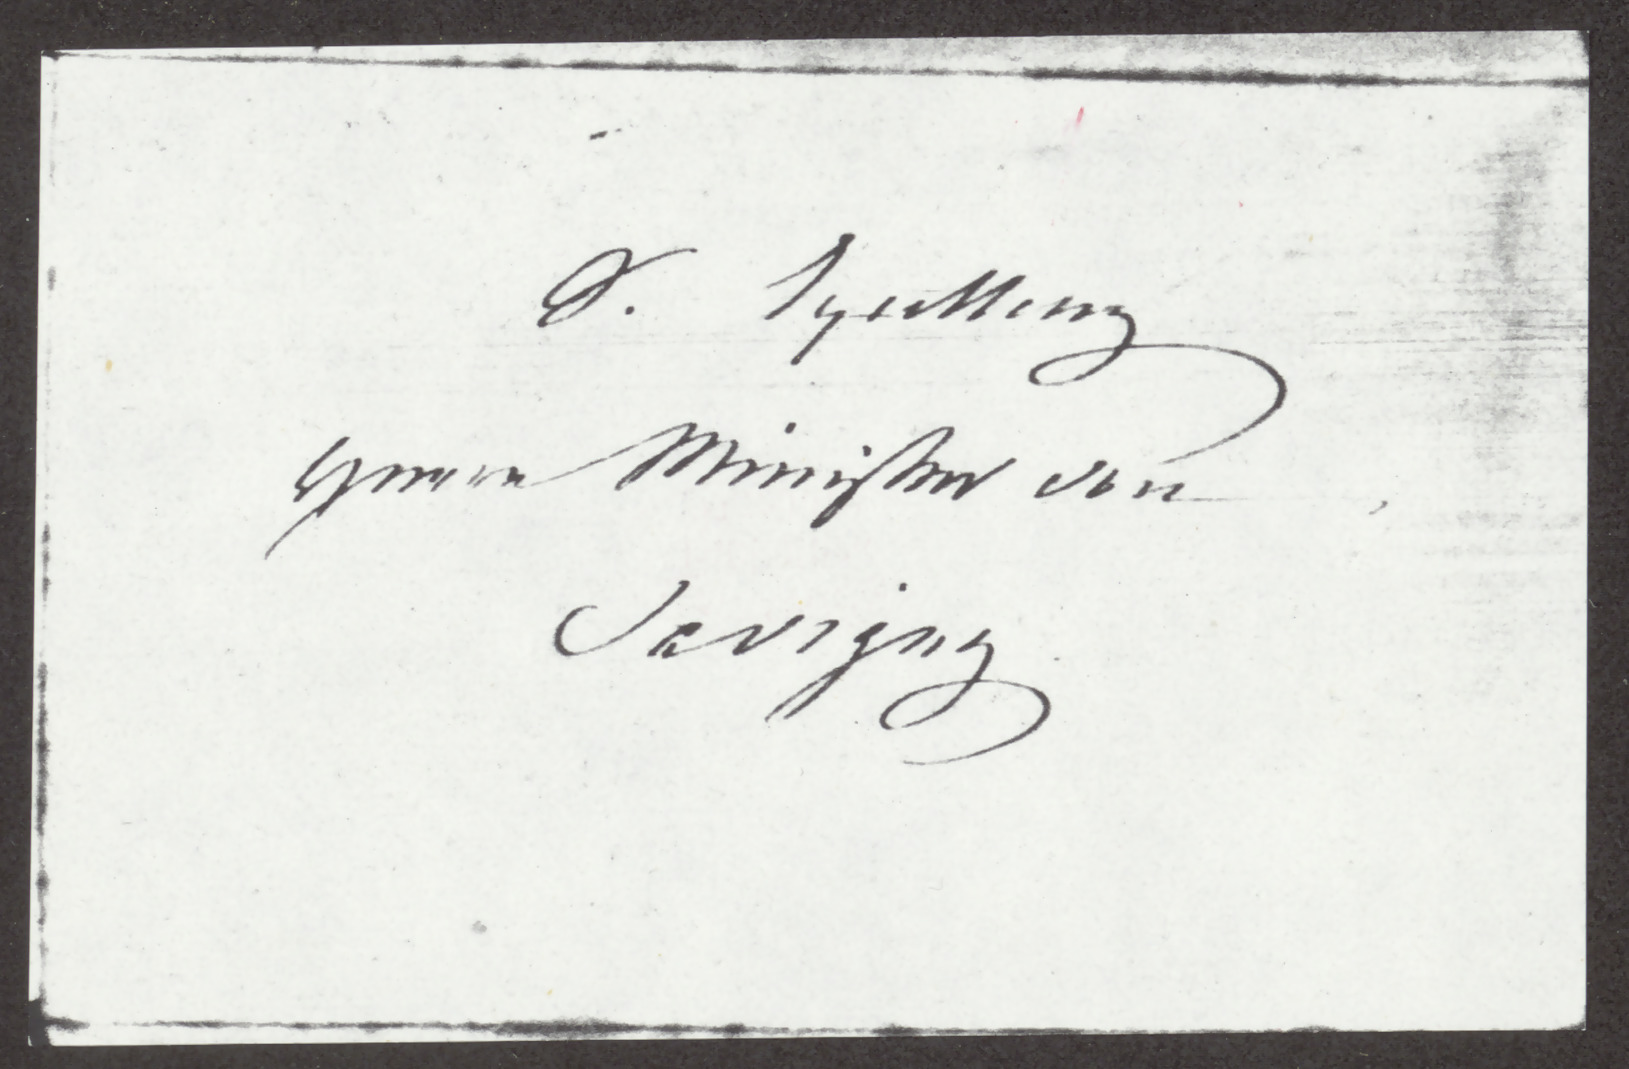 S. Excellenz
Herrn Minister von
Savigny